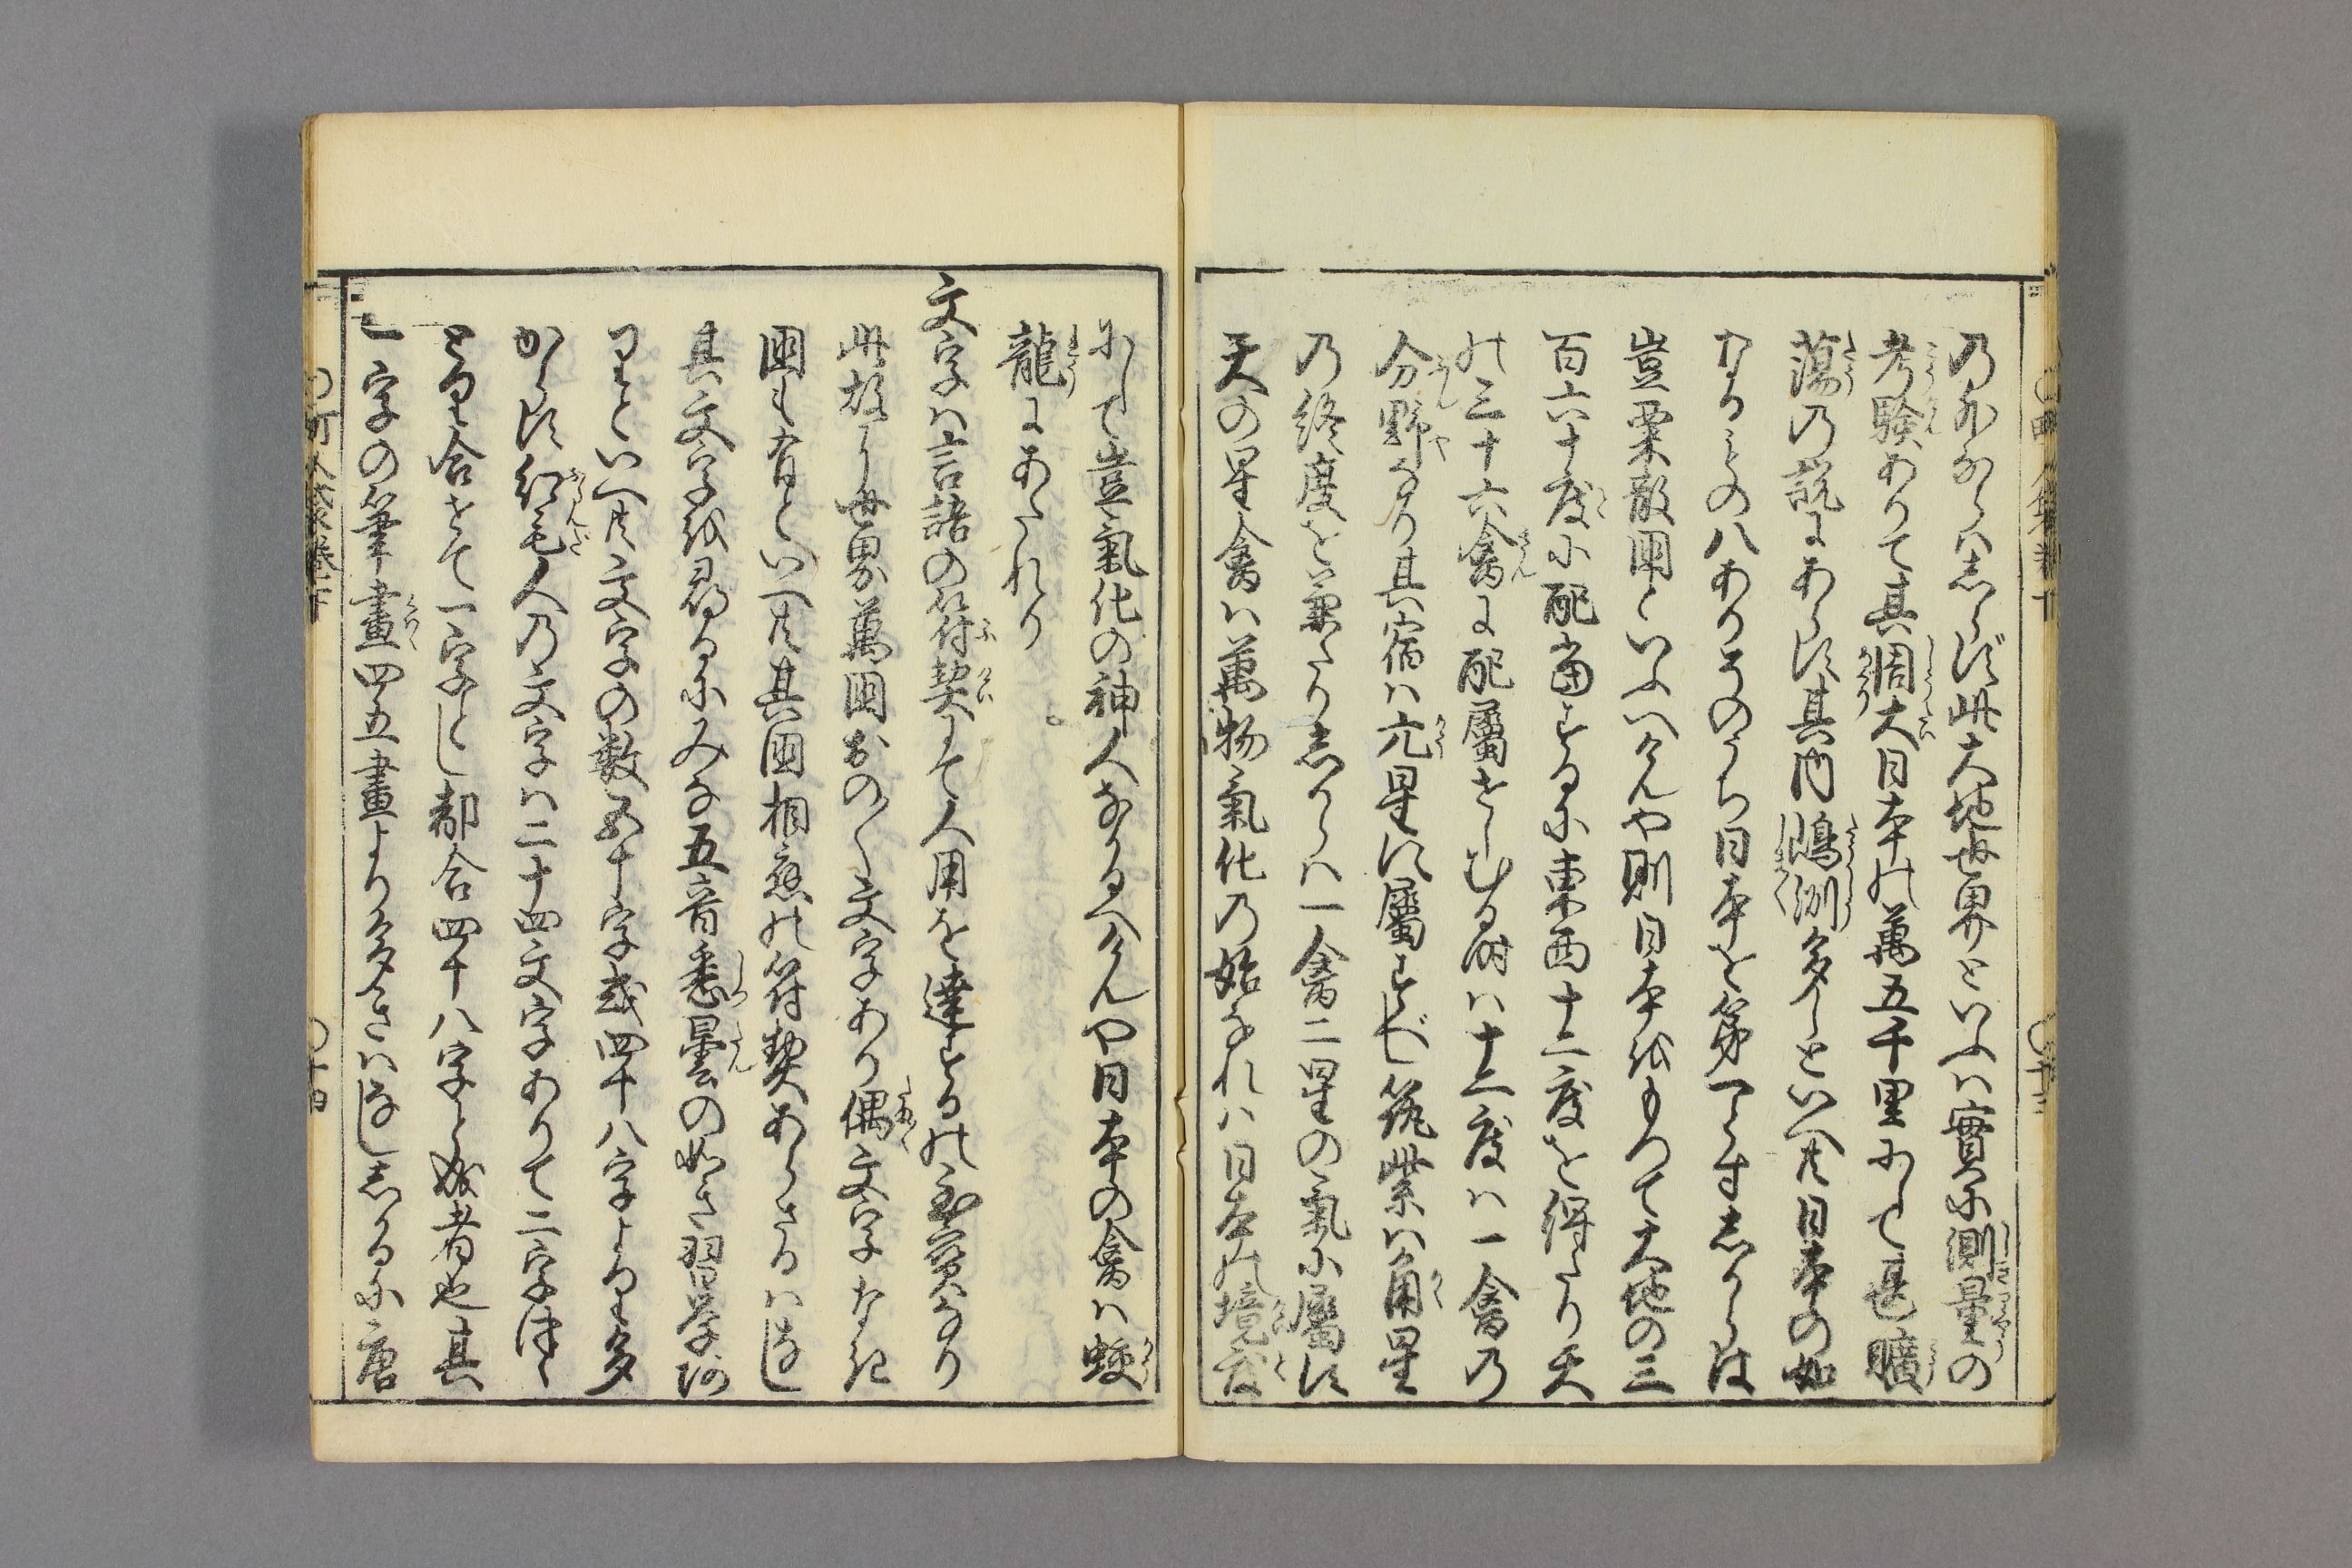 乃外ならハあらず此大地世界といふハ實に測量の
考驗ありて其周大日本の萬五千里にして甚曠
蕩の説にあらず其内鴫洲多しといへ共日本の如
なるものハありそのうち日本を第一とすしからは
豈粟散国といふへけんや則日本をもつて大地の三
百六十度に配當するに東西十二度を得たり天
の三十六禽に配屬せしむる時ハ十二度ハ一禽の
分野なり其宿ハ亢星に屬すべし筑紫ハ角星
の終度を兼たりしからハ一禽二星の氣に屬す
天の星禽ハ萬物氣化の始なれハ日本の境度
にして豈氣化の神人なるへけんや日本の禽ハ蛟
龍にあたれり
文字ハ言語の符契にて人用を達するの至寶なり
此故に世界萬国おの〱文字あり偶文字なき
国も有といへ共其国相應の符契あらさるハなし
其文字を尋るにみな五音悉曇の如き習学
りといへ共文字の数五十字或四十八字より多
からす紅毛人の文字ハ二十四文字ありて二字つゝ
とり合せて一字とし都合四十八字と成者也其
一字の筆畫四五畫より多きハなししかるに唐